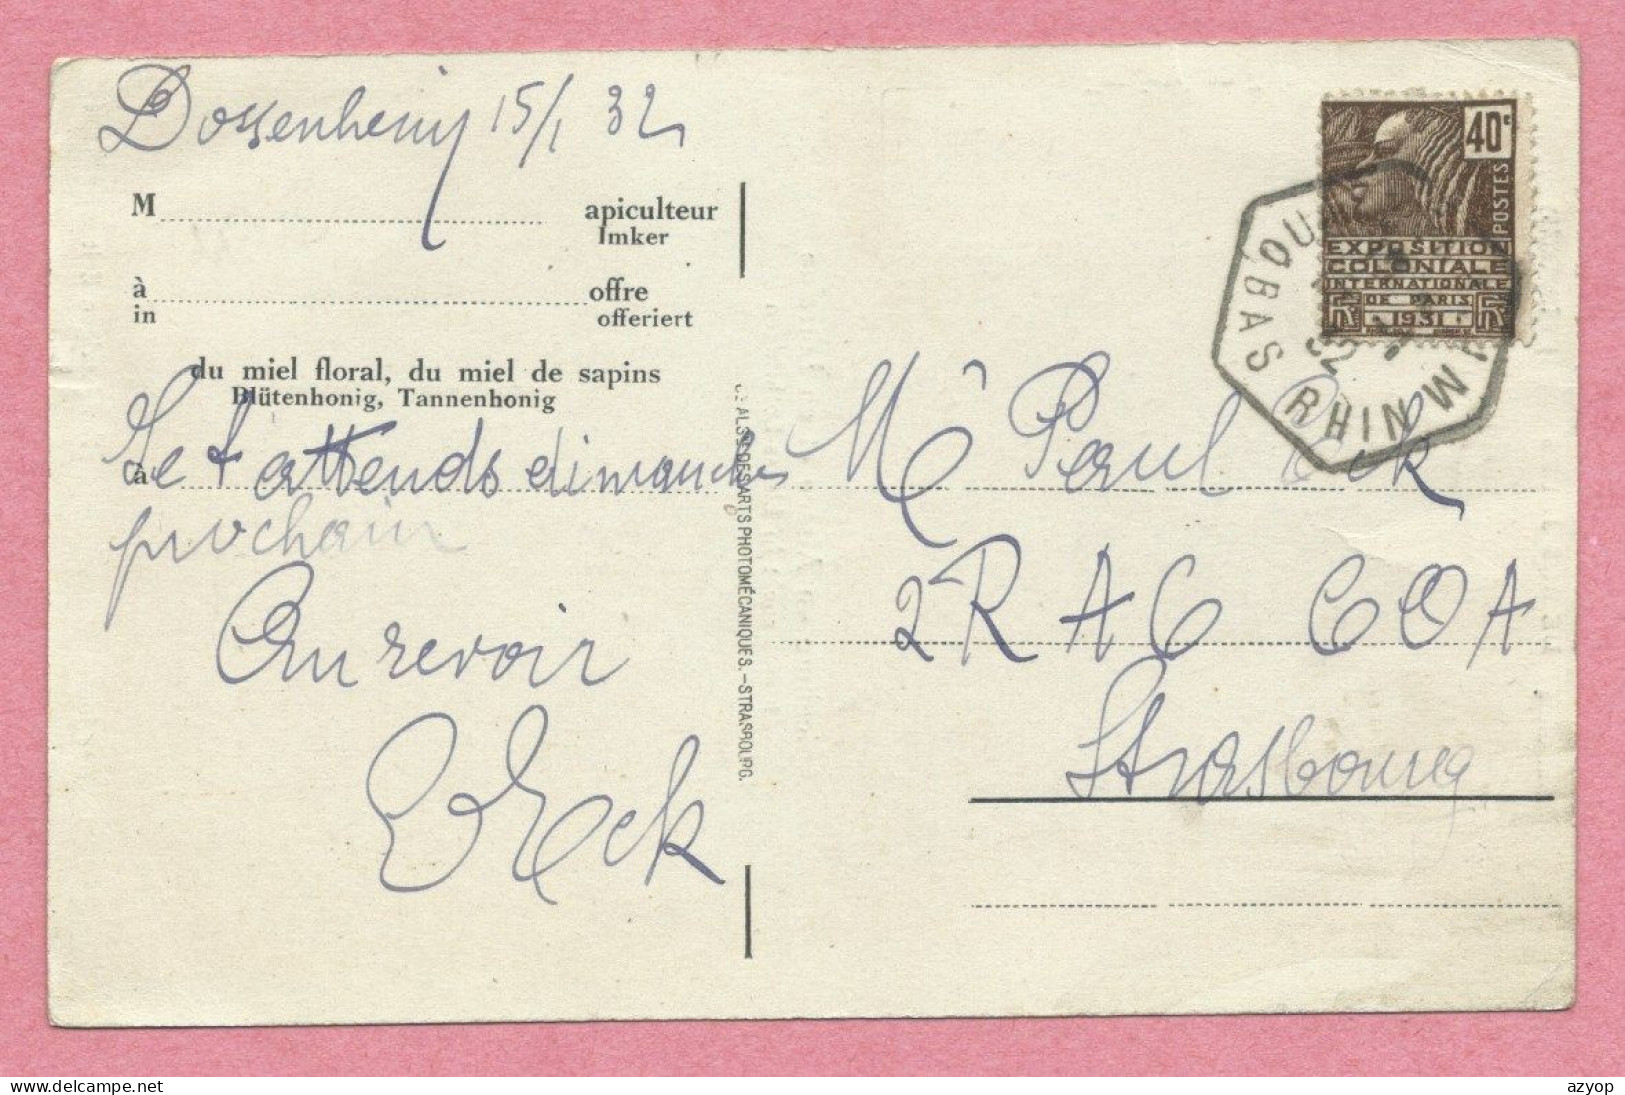 Dossenheim 15/1 32
M apiculteur
Imker
à offre
in offeriert
du miel floral, du miel de sapins
Blütenhonig, Tannenhonig
à
Je t attends dimanche
prochain
Au revoir
Eck
ALS. DES ARTS PHOTOMÉCANIQUES. - STRASBOURG.
40c
POSTES
EXPOSITION
COLONIALE
INTERNATIONALE
DE PARIS
1931
BAS RHIN
32
Mr Paul Eck
2 R A C C O A
Strasbourg
azyop
www.delcampe.net